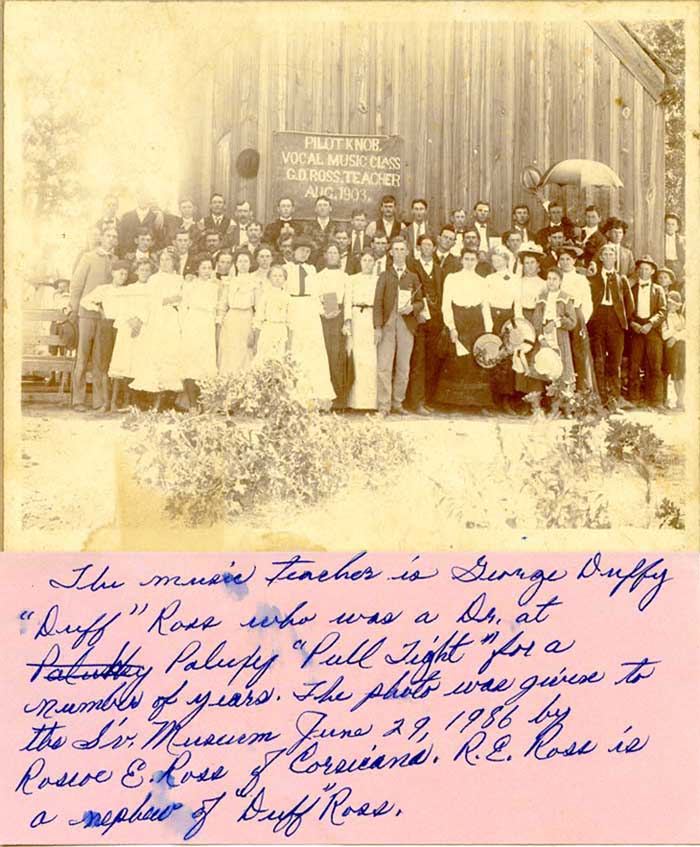 PILOT KNOB.
VOCAL MUSIC CLASS
G.D. ROSS, TEACHER
AUG. 1903.
The music teacher is George Duffy
"Duff" Ross who was a Dr. at
Paluxy "Pull Tight" for a
number of years. The photo was given to
the S'v. Museum June 29, 1986 by
Roscoe E. Ross of Corsicana. R.E. Ross is
a nephew of "Duff" Ross.